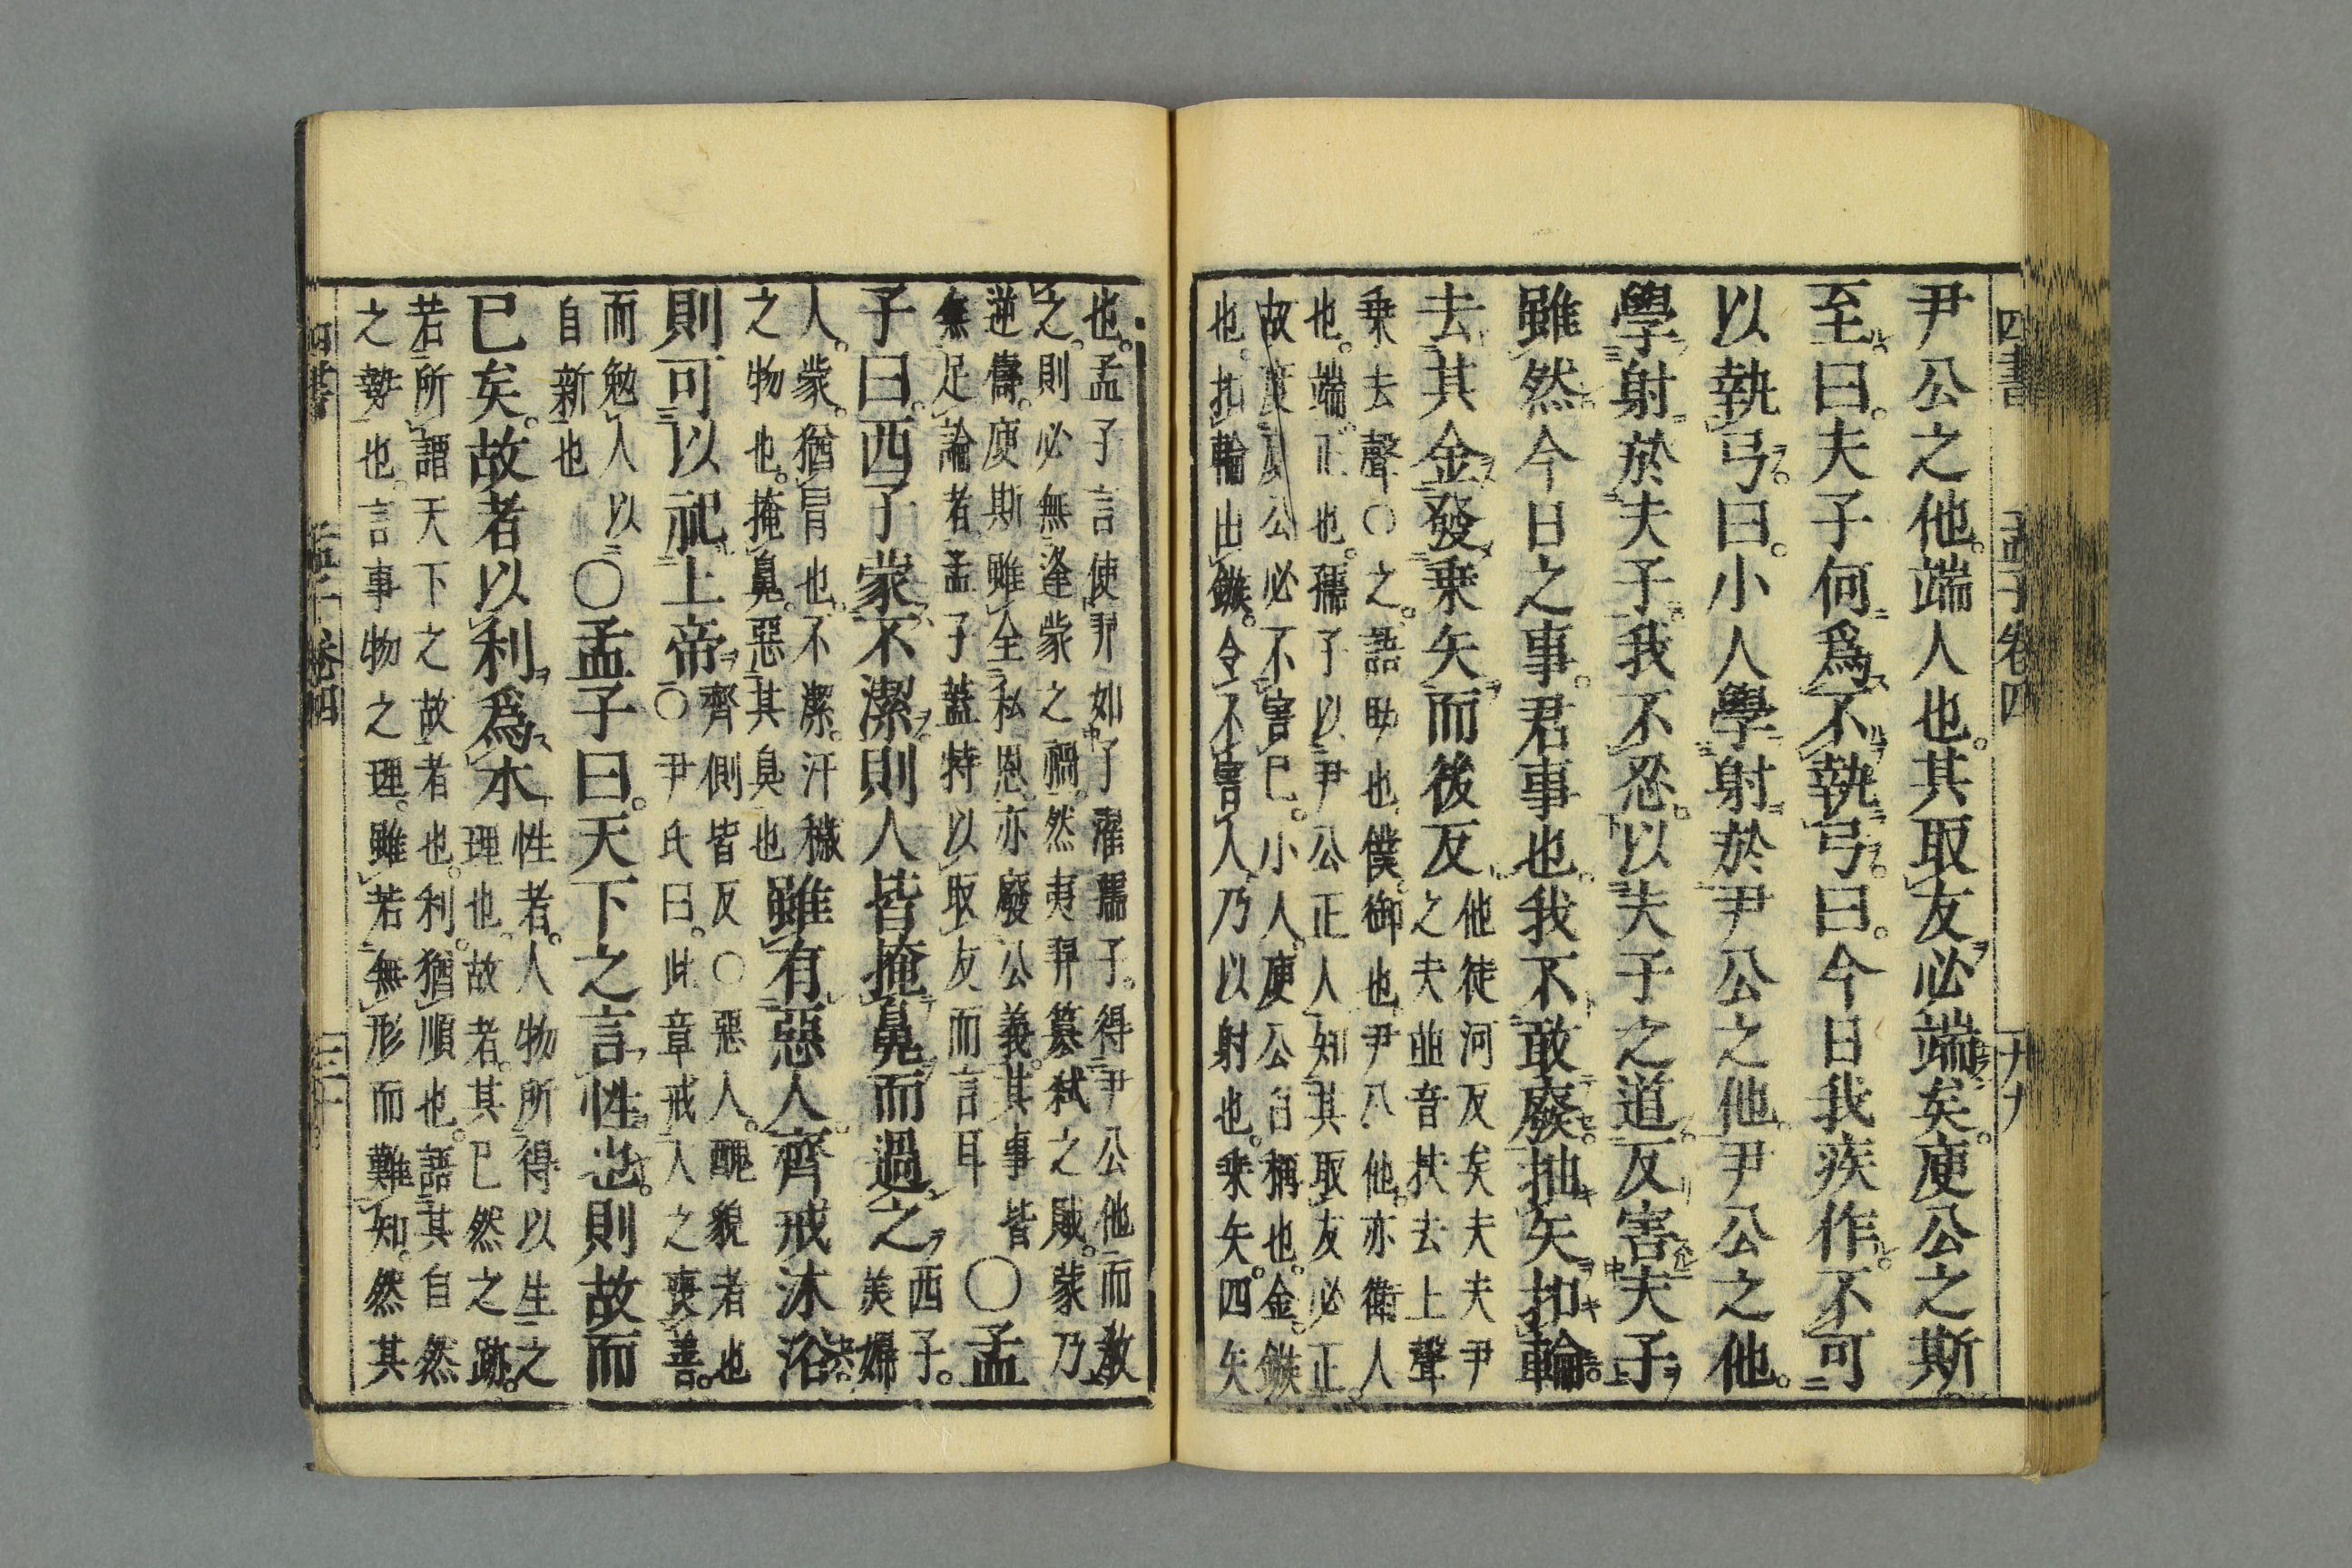 四書 孟子卷四 十九
尹公之他。端人也。其取友必端矣。庾公之斯
至。曰。夫子何爲不執弓。曰。今日我疾作。不可
以執弓。曰。小人學射於尹公之他。尹公之他。
學射於夫子。我不忍。以夫子之道。反害夫子
雖然今日之事。君事也。我不敢廢。抽矢扣輪。
去其金。發乗矢。而後反
他徒河反矣夫夫尹
之夫並音扶去上聲
乗去聲○之。語助也。僕。御也。尹公他。亦衛人
也。端。正也。孺子以尹公正人。知其取友必正。
故度庾公必不害已。小人。庾公自稱也。金。鏃
也。扣輪出鏃。令不害人。乃以射也。乗矢。四矢
也。孟子言使羿如子濯孺子。得尹公他而敎
之。則必無逢蒙之禍。然夷羿簒弑之賊。蒙乃
逆儔。庾斯雖全私恩。亦廢公義。其事皆
無足論者。孟子蓋特以取友而言耳
○孟
子曰。西子蒙不潔。則人皆掩鼻而過之
西子。
美婦
人。蒙。猶冒也。不潔。汙穢
之物也。掩鼻。惡其臭也
雖有惡人。齊戒沐浴。
則可以祀上帝
齊側皆反○惡人。醜貌者也
○尹氏曰。此章戒人之喪善。
而勉人以
自新也
○孟子曰。天下之言性也。則故而
已矣。故者以利爲本
性者。人物所得以生之
理也。故者。其已然之跡。
若所謂天下之故者也。利。猶順也。語其自然
之勢也。言事物之理。雖若無形而難知。然其
四書 孟子卷四